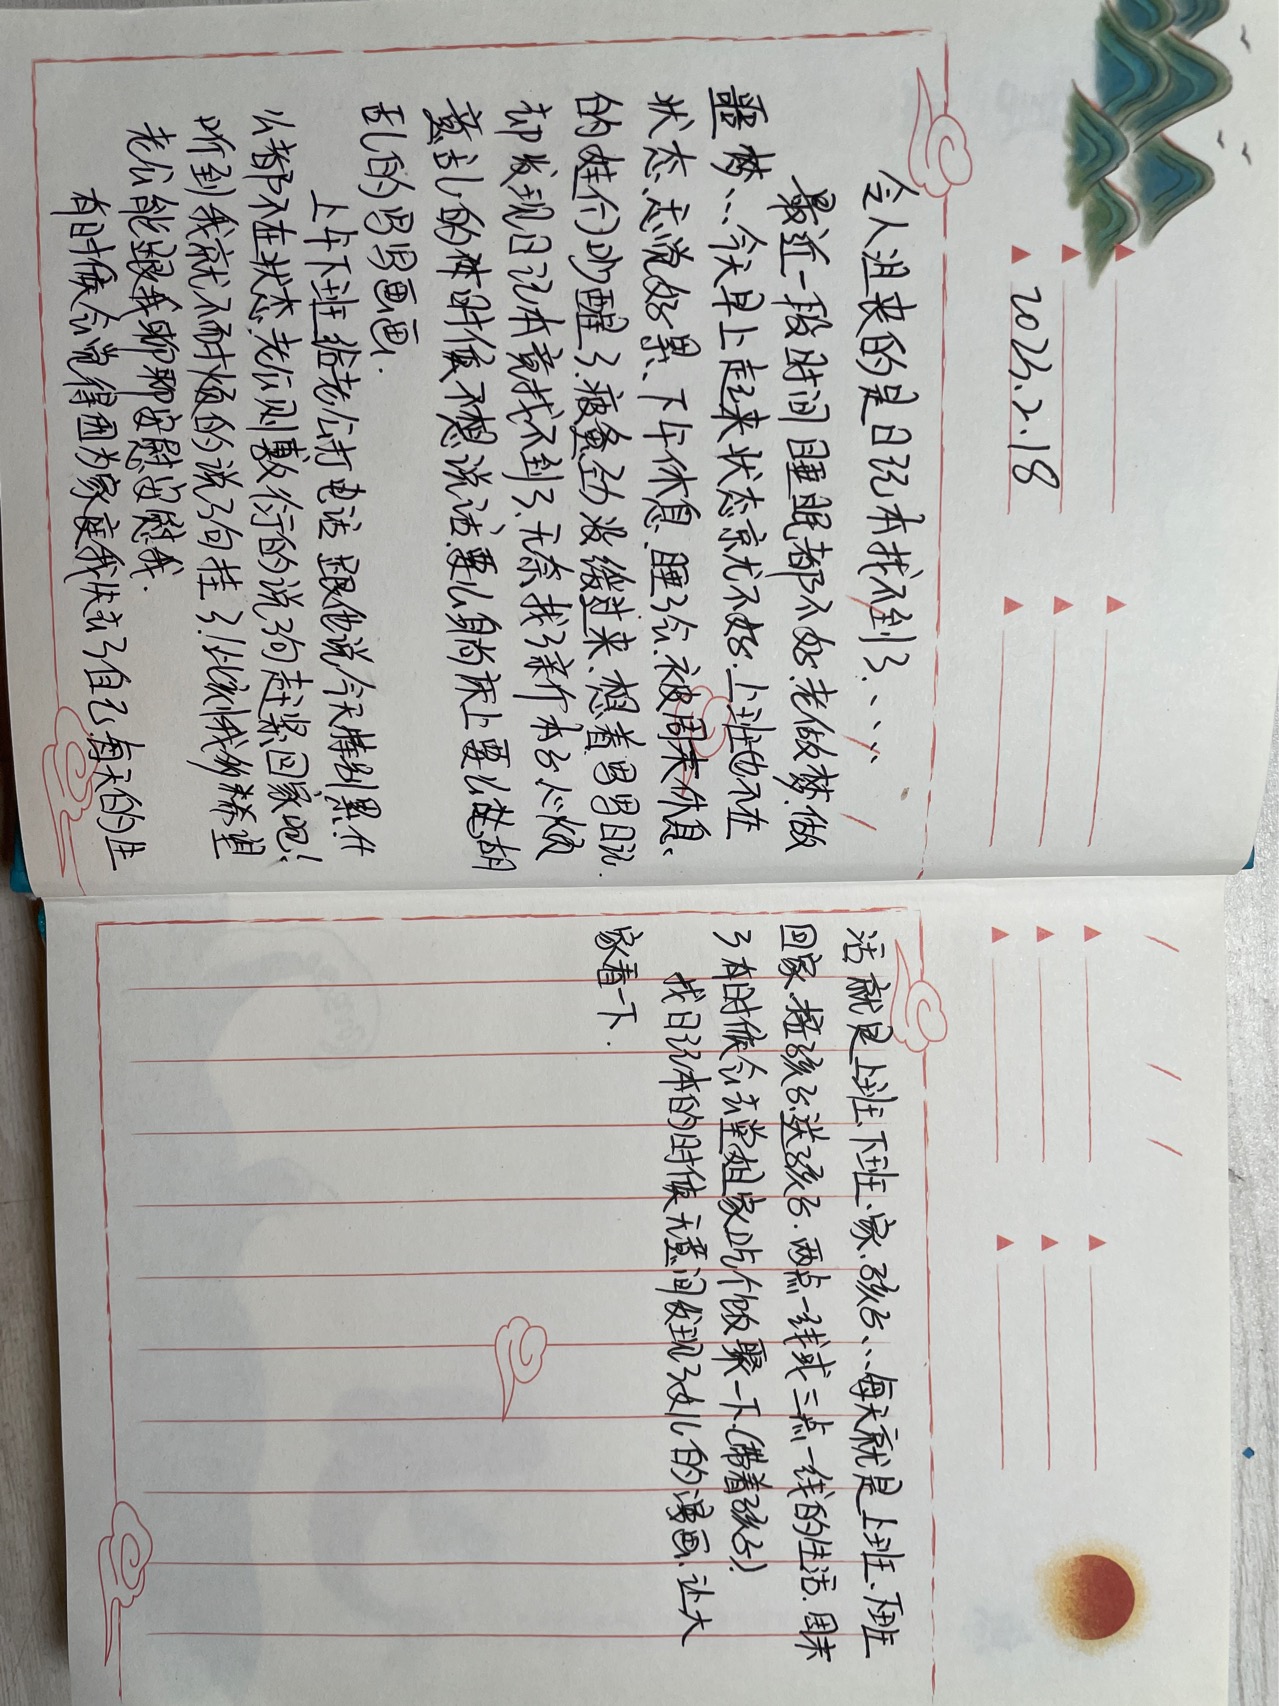 2023.2.18
令人沮丧的是日记本找不到了、、、
最近一段时间睡眠都不好.老做梦.做
噩梦、、、今天早上起来状态就尤不好.上班也不在
状态.总觉好累、下午休息.睡了会.被周末休息、
的娃们吵醒了.疲惫劲没缓过来.想着男男日记.
却发现日记本竟找不到了.无奈找了新本.心烦
意乱的 时候不想说话.要么躺床上要么 胡
乱的男男画画、
上午下班给老公打电话 跟他说今天特别累.什
么都不在状态.老公则敷衍的说了句赶紧回家吧!
听到我就不耐烦的说了句挂了!此刻我多希望
老公能跟我聊聊安慰安慰我.
有时候会觉得因为家庭我失去了自己.每天的生
活就是上班.下班.家.孩子、、、每天就是上班、下班
回家.接孩子.送孩子.两点一线或三点一线的生活.周末
了有时候会去堂姐家吃个饭聚一下.(带着孩子)
找日记本的时候无意间发现了女儿的漫画、让大
家看一下.